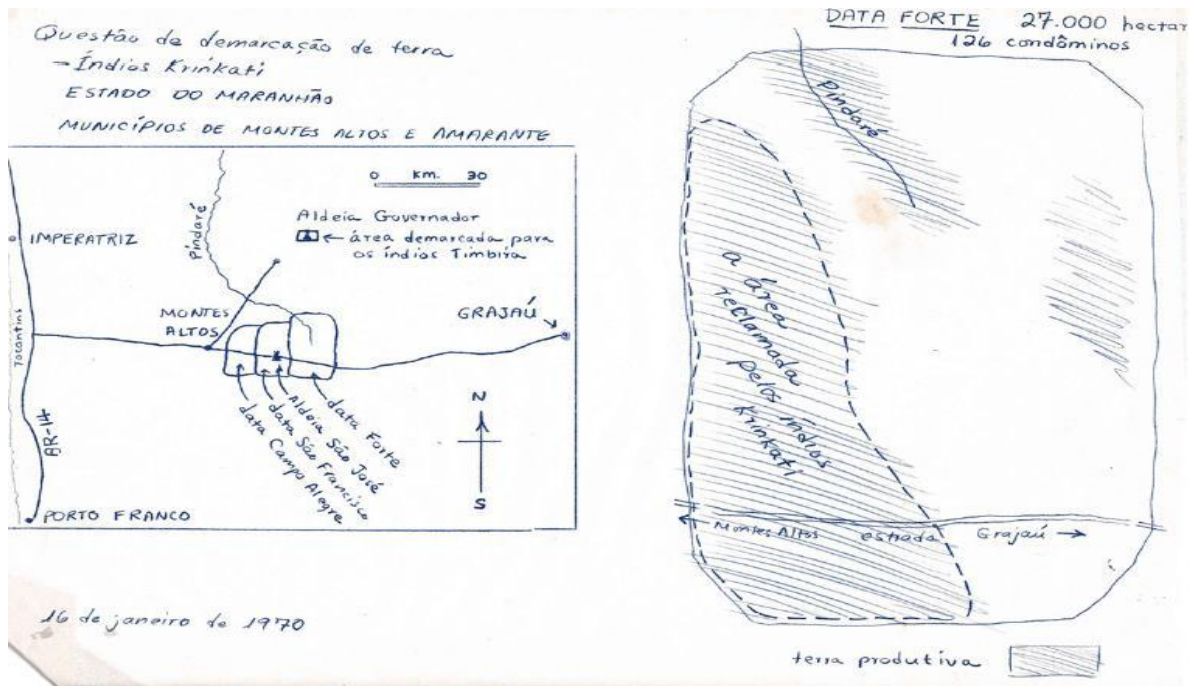 Questão de demarcação de terra
- Índios Krinkati
ESTADO DO MARANHÃO
MUNICÍPIOS DE MONTES ALTOS E AMARANTE
0 km. 30
Aldeia Governador
← área demarcada para
os índios Timbira
IMPERATRIZ
Pindaré
MONTES
ALTOS
GRAJAÚ
Tocantins
BR-14
PORTO FRANCO
data Forte
Aldeia São José
data São Francisco
data Campo Alegre
N
S
16 de janeiro de 1970
DATA FORTE 27.000 hectar
126 condôminos
Pindaré
a área
reclamada
pelos índios
Krinkati
← Montes Altos estrada Grajaú →
terra produtiva